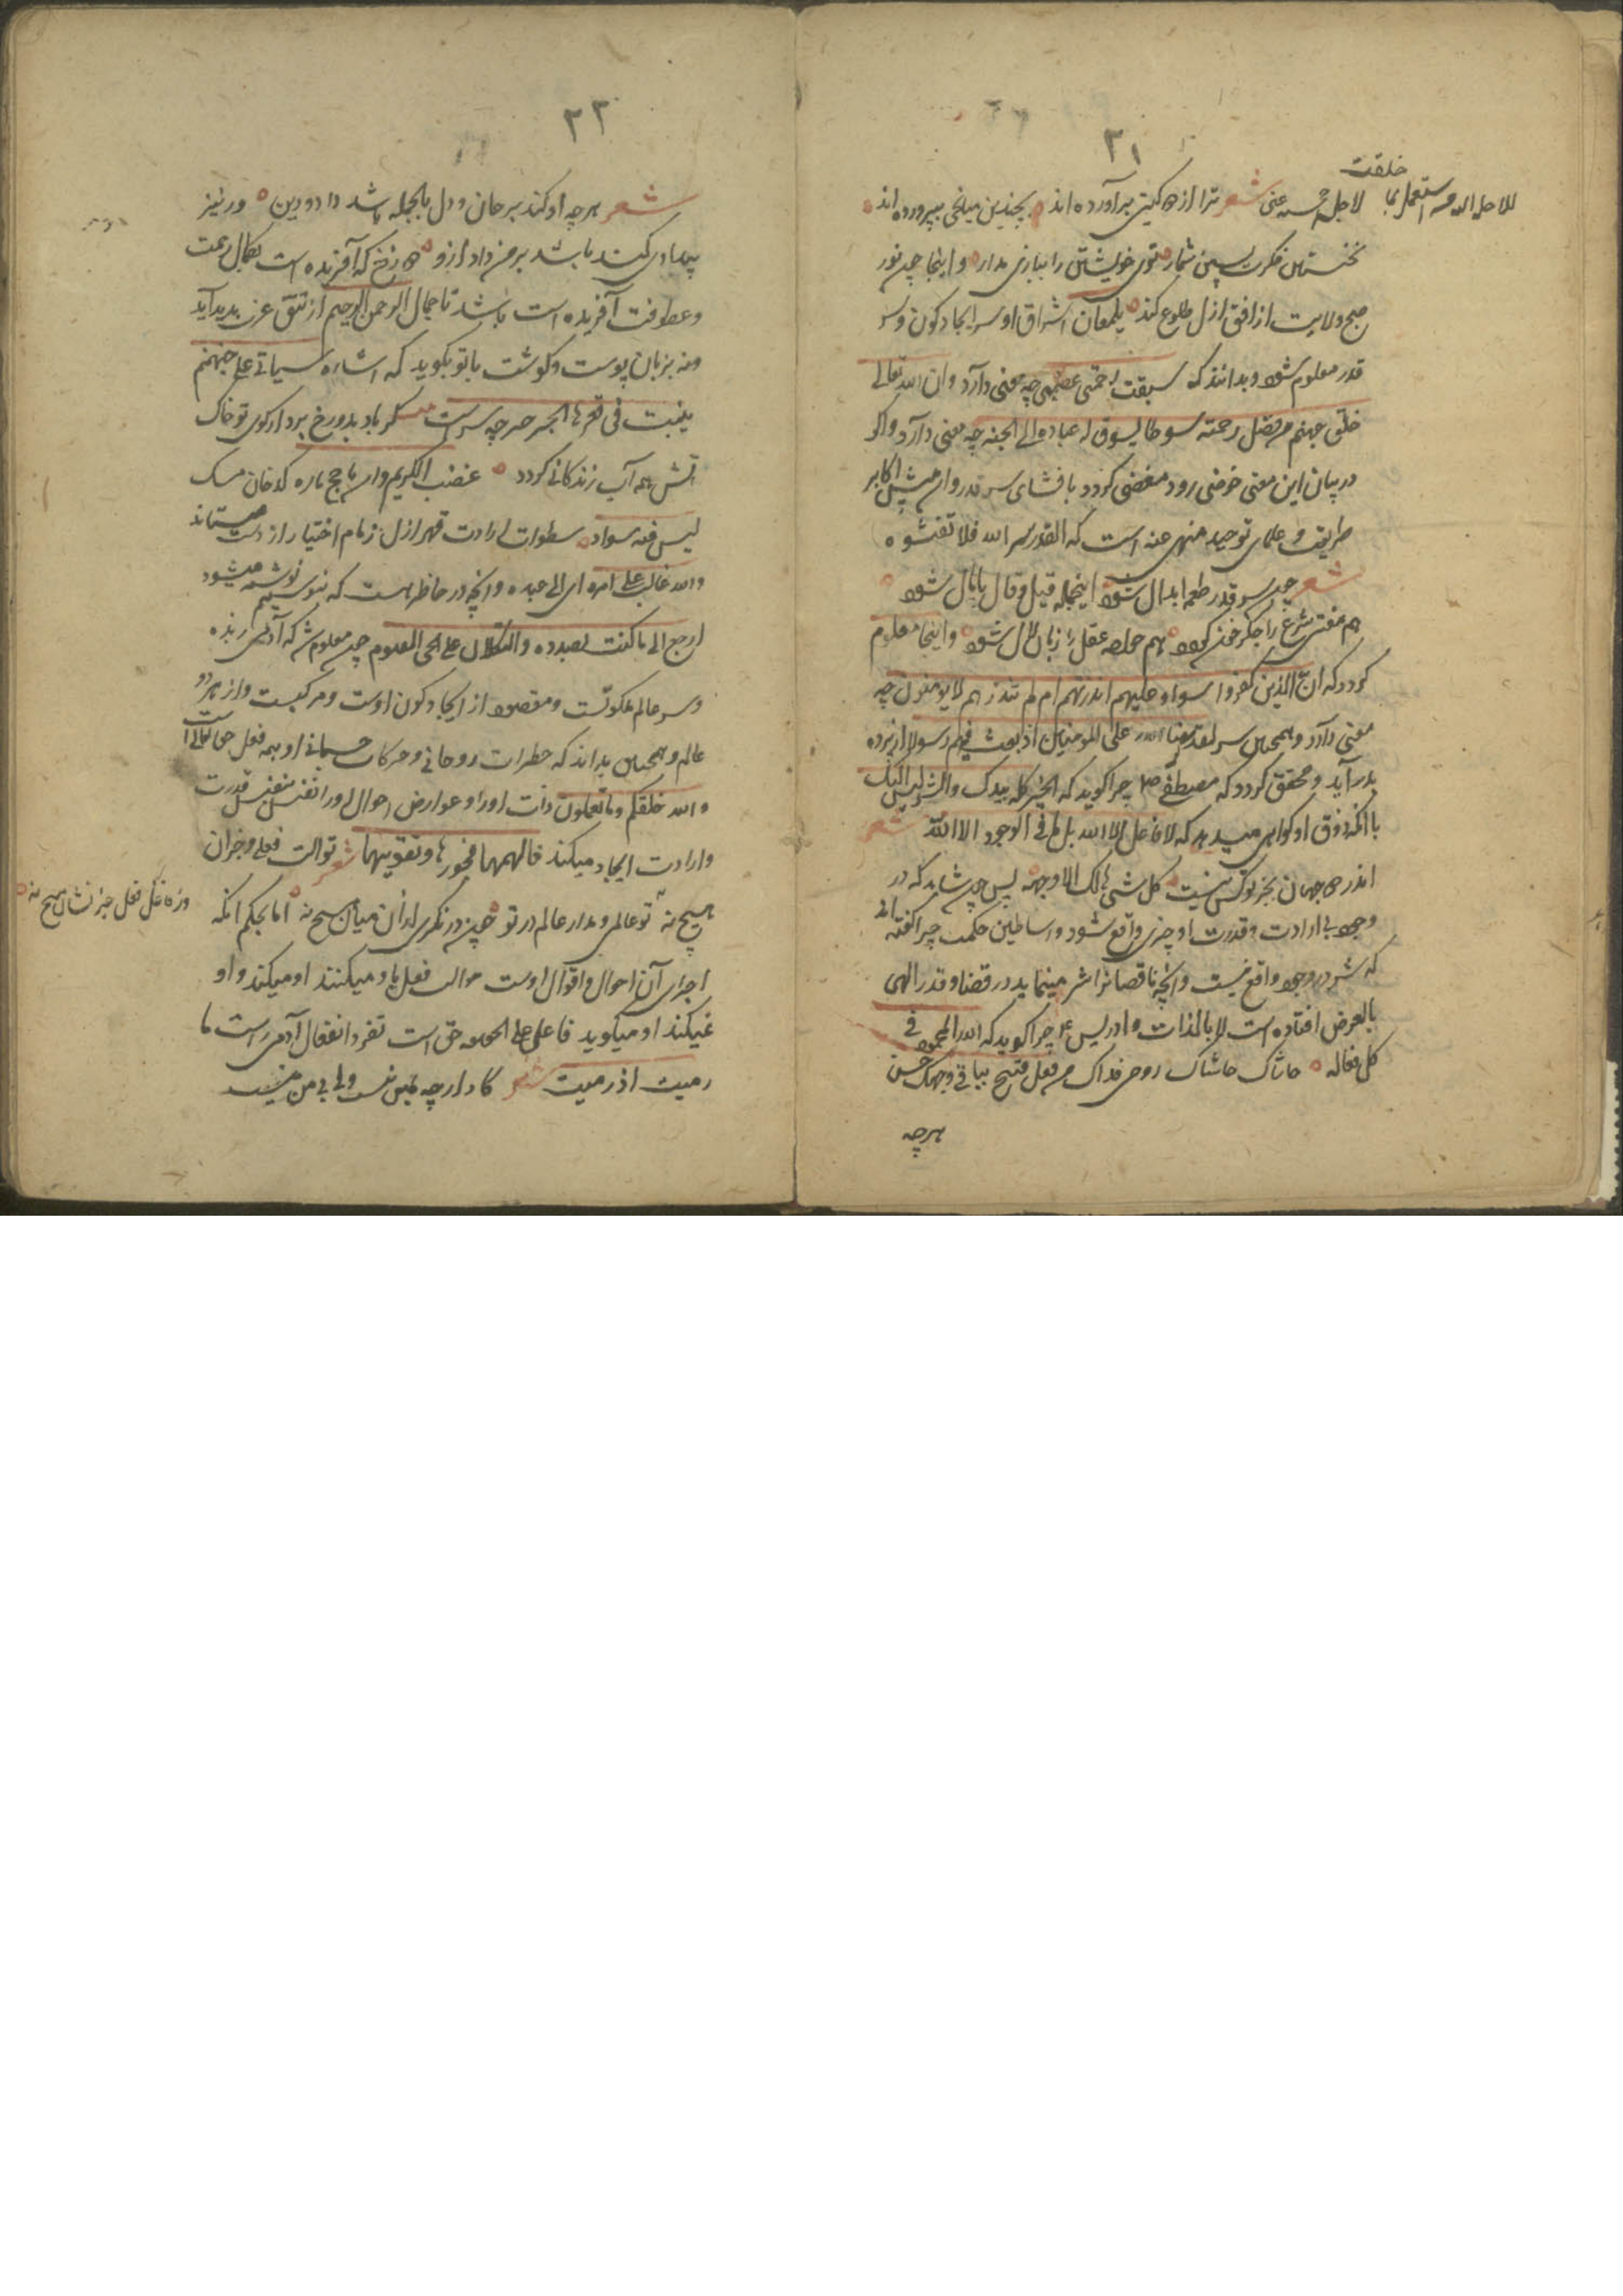 ٢١
خلقت
لاجل
شعر ترا از دو گیتی برآورده اند بچندین میانجی بپرورده اند
نخستین فکرت پسین شمار توی خویشتن را ببازی مدار و اینجا چون نور
صبح ولایت از افق ازل طلوع کند بلمعان اشراق او سر ایجاد کون و سر
قدر معلوم شود و بدانند که سبقت رحمتی غضبی چه معنی دارد و ان الله تعالی
خلق جهنم من فضل رحمته سوطا یسوق به عباده الی الجنه چه معنی دارد و اگر
در بیان این معنی خوضی رود مفضی گردد بافشای سر قدر و آن پیش اکابر
طریقت و علمای توحید منهی عنه است که القدر سر الله فلا تفشوه
شعر چون سر قدر طعمه ابدال شود اینجمله قیل و قال پامال شود
هم مفتی شرع را جگر خون گردد هم خواجه عقل را زبان لال شود و اینجا معلوم
گردد که ان الذین کفروا سواء علیهم اانذرتهم ام لم تنذرهم لا یومنون چه
معنی دارد و همچنین سر لقد من الله علی المومنین اذ بعث فیهم رسولا از پرده
بدر آید و محقق گردد که مصطفی چرا گوید که الخیر کله بیدک والشر لیس الیک
با آنکه ذوق او گواهی میدهد که لا فاعل الا الله بل لا فی الوجود الا الله شعر
اندر دو جهان بجز تو کس نیست کل شئ هالک الا وجهه پس چون شاید که در
وجود بی ارادت و قدرت او چیزی واقع شود و اساطین حکمت چرا گفته اند
که شر در وجود واقع نیست و آنچه ناقصانرا شر مینماید در قضا و قدر الهی
بالعرض افتاده است لا بالذات و ادریس چرا گوید که الله المحمود فی
کل فعاله حاشاک حاشاک روحی فداک من فعل قبیح بیاقی وجهک حسن
هرچه
٢٢
شعر هرچه او کند بر جان و دل بالجمله باشد داد و دین ور نیز
بیدادی کند باشد بر من داد ازو دوزخ که آفریده است بکمال رحمت
و عطوفت آفریده است باشد تا جمال الرحمن الرحیم از تتق عزت پدید آید
و نه بزبان پوست و گوشت با تو بگوید که اشاره سیأتی علی جهنم
ینبت فی قعرها الجرجیر چه سر است گر باد بدوزخ برد از کوی تو خاک
آتش همه آب زندگانی گردد غضب الکریم و ان تاجج ناره کدخان مسک
لیس فیه سواد سطوات ارادت قهر ازل زمام اختیار از دست میستاند
والله غالب علی امره ای الی عبده و آنچه در خاطر هست که نوشته میشود
ارجع الی ما کنت بصدده والتکلان علی الحی القیوم چون معلوم شد که آدمی زبده
و سر عالم ملکوتست و مقصود از ایجاد کون اوست و مرکبست و از هر دو
عالم و همچنین بداند که خطرات روحانی و حرکات جسمانی او همه فعل حق تعالی است
و الله خلقکم و ما تعملون ذات او را و عوارض احوال او را نفس بنفس قدرت
و ارادت ایجاد میکند فالهمها فجورها و تقویها شعر تو آلت فعلی و جز آن
هیچ نه تو عالمی و مدار عالم در تو چون درنگری در آن میان هیچ نه اما بحکم آنکه
وز فاعل فعل جز نشان هیچ نه
اجرای آن احوال و اقوال اوست حوالت فعل باو میکنند او میکند و او
نمیکند او میگوید فاعل علی الحقیقه حق است تفرد انفعال آدمی راست ما
رمیت اذ رمیت شعر